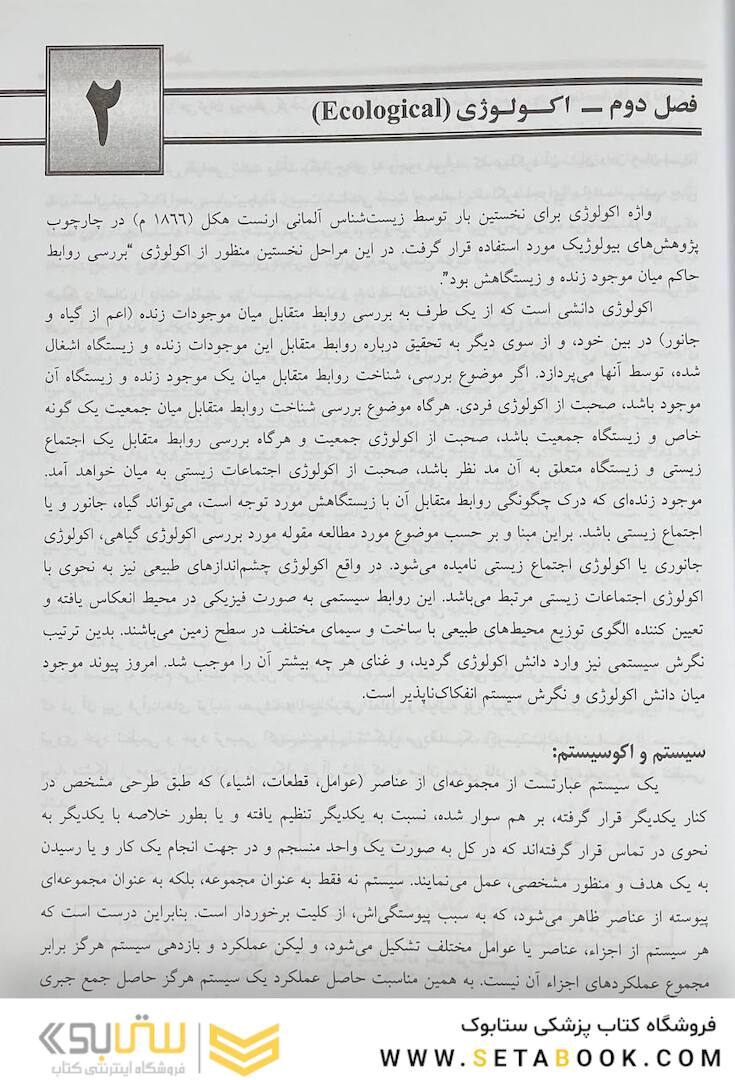 ۲
فصل دوم – اکولوژی (Ecological)
واژه اکولوژی برای نخستین بار توسط زیست‌شناس آلمانی ارنست هکل (۱۸۶۶ م) در چارچوب
پژوهش‌های بیولوژیک مورد استفاده قرار گرفت. در این مراحل نخستین منظور از اکولوژی "بررسی روابط
حاکم میان موجود زنده و زیستگاهش بود".
اکولوژی دانشی است که از یک طرف به بررسی روابط متقابل میان موجودات زنده (اعم از گیاه و
جانور) در بین خود، و از سوی دیگر به تحقیق درباره روابط متقابل این موجودات زنده و زیستگاه اشغال
شده، توسط آنها می‌پردازد. اگر موضوع بررسی، شناخت روابط متقابل میان یک موجود زنده و زیستگاه آن
موجود باشد، صحبت از اکولوژی فردی. هرگاه موضوع بررسی شناخت روابط متقابل میان جمعیت یک گونه
خاص و زیستگاه جمعیت باشد، صحبت از اکولوژی جمعیت و هرگاه بررسی روابط متقابل یک اجتماع
زیستی و زیستگاه متعلق به آن مد نظر باشد، صحبت از اکولوژی اجتماعات زیستی به میان خواهد آمد.
موجود زنده‌ای که درک چگونگی روابط متقابل آن با زیستگاهش مورد توجه است، می‌تواند گیاه، جانور و یا
اجتماع زیستی باشد. براین مبنا و بر حسب موضوع مورد مطالعه مقوله مورد بررسی اکولوژی گیاهی، اکولوژی
جانوری یا اکولوژی اجتماع زیستی نامیده می‌شود. در واقع اکولوژی چشم‌اندازهای طبیعی نیز به نحوی با
اکولوژی اجتماعات زیستی مرتبط می‌باشد. این روابط سیستمی به صورت فیزیکی در محیط انعکاس یافته و
تعیین کننده الگوی توزیع محیط‌های طبیعی با ساخت و سیمای مختلف در سطح زمین می‌باشند. بدین ترتیب
نگرش سیستمی نیز وارد دانش اکولوژی گردید، و غنای هر چه بیشتر آن را موجب شد. امروز پیوند موجود
میان دانش اکولوژی و نگرش سیستم انفکاک‌ناپذیر است.
سیستم و اکوسیستم:
یک سیستم عبارتست از مجموعه‌ای از عناصر (عوامل، قطعات، اشیاء) که طبق طرحی مشخص در
کنار یکدیگر قرار گرفته، بر هم سوار شده، نسبت به یکدیگر تنظیم یافته و یا بطور خلاصه با یکدیگر به
نحوی در تماس قرار گرفته‌اند که در کل به صورت یک واحد منسجم و در جهت انجام یک کار و یا رسیدن
به یک هدف و منظور مشخصی، عمل می‌نمایند. سیستم نه فقط به عنوان مجموعه، بلکه به عنوان مجموعه‌ای
پیوسته از عناصر ظاهر می‌شود، که به سبب پیوستگی‌اش، از کلیت برخوردار است. بنابراین درست است که
هر سیستم از اجزاء، عناصر یا عوامل مختلف تشکیل می‌شود، و لیکن عملکرد و بازدهی سیستم هرگز برابر
مجموع عملکردهای اجزاء آن نیست. به همین مناسبت حاصل عملکرد یک سیستم هرگز حاصل جمع جبری
فروشگاه کتاب پزشکی ستابوک
WWW.SETABOOK.COM
ستابوک
فروشگاه اینترنتی کتاب